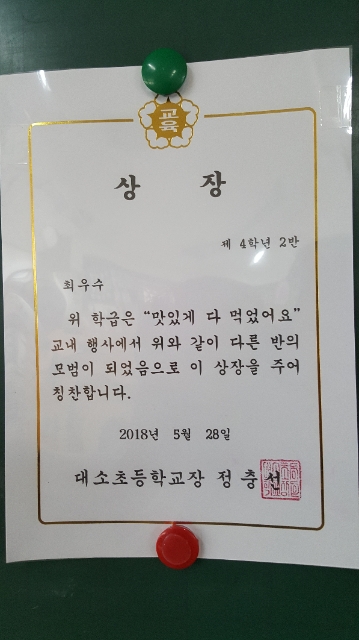 교육
상 장
제 4학년 2반
최우수
위 학급은 “맛있게 다 먹었어요”
교내 행사에서 위와 같이 다른 반의
모범이 되었음으로 이 상장을 주어
칭찬합니다.
2018년 5월 28일
대소초등학교장 정충선